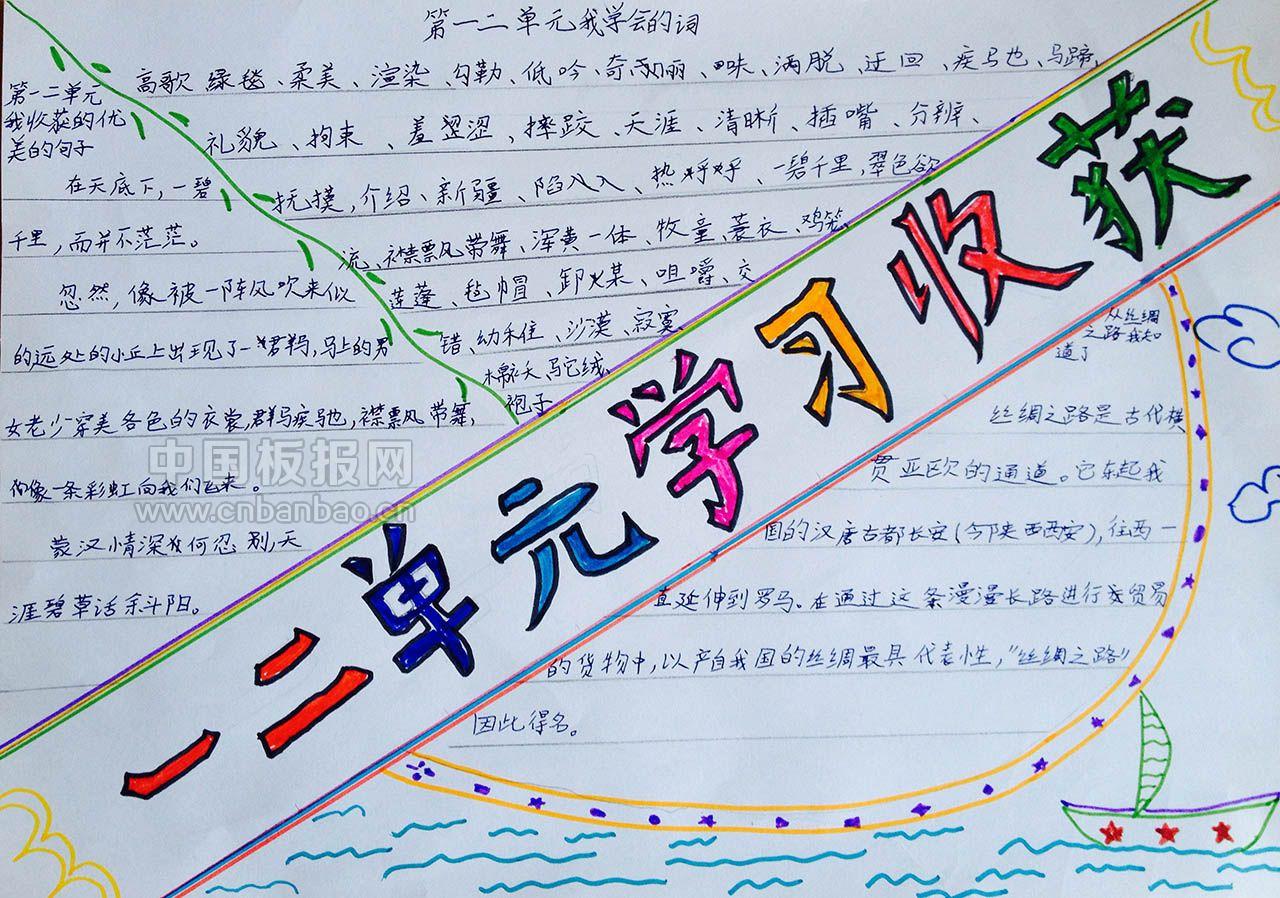 第一二单元我学会的词
高歌、绿毯、柔美、渲染、勾勒、低吟、奇丽、回味、洒脱、迂回、疾驰、马蹄、
礼貌、拘束、羞涩、摔跤、天涯、清晰、插嘴、分辨、
抚摸,介绍、新疆、陷入、热乎乎、一碧千里,翠色欲
流、襟飘带舞、浑黄一体、牧童、蓑衣、鸡笼
莲蓬、毡帽、卸煤、咀嚼、交
错、幼稚、沙漠、寂寞、
棉袄、驼绒、
袍子
第一二单元
我收获的优
美的句子
在天底下,一碧
千里,而并不茫茫。
忽然,像被一阵风吹来似
的远处的小丘上出现了一群马,马上的男
女老少穿美各色的衣裳,群马疾驰,襟飘带舞,
像一条彩虹向我们飞来。
蒙汉情深何忍别,天
涯碧草话斜阳。
一二单元学习收获
从丝绸
之路我知
道了
丝绸之路是古代横
贯亚欧的通道。它东起我
国的汉唐古都长安(今陕西西安),往西一
直延伸到罗马。在通过这条漫漫长路进行交贸易
的货物中,以产自我国的丝绸最具代表性,"丝绸之路"
因此得名。
中国板报网
www.cnbanbao.cn